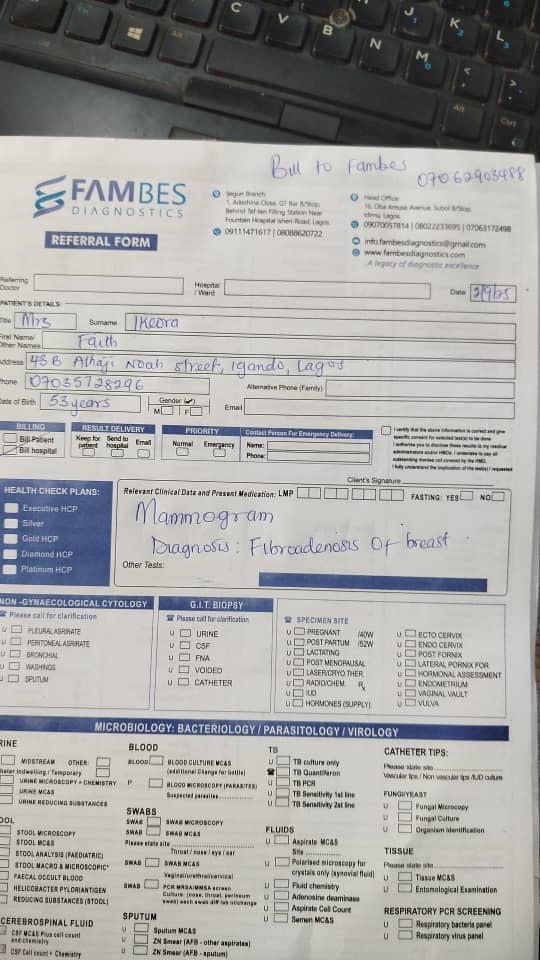 C
V
B
N
J
1
M
0
K
2
L
3
<
,
>
.
Alt
Alt
Ctrl
Bill to Fambes 07062903488
FAMBES
DIAGNOSTICS
REFERRAL FORM
Segun Branch:
1, Adeshina Close, GT Bar B/Stop,
Behind Tef-len Filling Station Near
Fountain Hospital Isheri Road, Lagos.
09111471617 | 08088620722
Head Office:
16, Oba Amusa Avenue, Subol B/Stop,
Idimu, Lagos.
09070057814 | 08022233695 | 07063172498
info.fambesdiagnostics@gmail.com
www.fambesdiagnostics.com
A legacy of diagnostic excellence
Referring
Doctor
Hospital
/ Ward
Date 2/9/25
PATIENT'S DETAILS:
Title Mrs Surname Ikeora
First Name/
Other Names Faith
Address 43B Alhaji Noah street, igando, Lagos
Phone 07035728296 Alternative Phone (Family)
Date of Birth 53 years Gender (✓) M F Email
BILLING
Bill Patient
Bill hospital
RESULT DELIVERY
Keep for patient Send to hospital Email
PRIORITY
Normal Emergency
Contact Person For Emergency Delivery:
Name:
Phone:
I certify that the above information is correct and give
specific consent for selected test(s) to be done
I authorise you to disclose these results to my medical
administrators and/or HMOs. I undertake to pay all
outstanding monies not covered by the HMO.
I fully understand the implication of the test(s) I requested
Client's Signature
HEALTH CHECK PLANS:
Executive HCP
Silver
Gold HCP
Diamond HCP
Platinum HCP
Relevant Clinical Data and Present Medication: LMP FASTING: YES NO
Mammogram
Diagnosis: Fibroadenosis Of breast
Other Tests:
NON-GYNAECOLOGICAL CYTOLOGY
Please call for clarification
U PLEURAL ASRIRATE
U PERITONEAL ASRIRATE
U BRONCHIAL
U WASHINGS
U SPUTUM
G.I.T. BIOPSY
Please call for clarification
U URINE
U CSF
U FNA
U VOIDED
U CATHETER
SPECIMEN SITE
U PREGNANT /40W
U POST PARTUM /52W
U LACTATING
U POST MENOPAUSAL
U LASER/CRYO.THER.
U RADIO/CHEM. Rx
U IUD
U HORMONES (SUPPLY)
U ECTO CERVIX
U ENDO CERVIX
U POST FORNIX
U LATERAL PORNIX FOR
U HORMONAL ASSESSMENT
U ENDOMETRIUM
U VAGINAL VAULT
U VULVA
MICROBIOLOGY: BACTERIOLOGY / PARASITOLOGY / VIROLOGY
RINE
MIDSTREAM OTHER:
heter Indwelling / Temporary
URINE MICROSCOPY + CHEMISTRY P
URINE MC&S
URINE REDUCING SUBSTANCES
OOL
STOOL MICROSCOPY
STOOL MC&S
STOOL ANALYSIS (PAEDIATRIC)
STOOL MACRO & MICROSCOPIC*
FAECAL OCCULT BLOOD
HELICOBACTER PYLORI ANTIGEN
REDUCING SUBSTANCES (STOOL)
CEREBROSPINAL FLUID
CSF MC&S Plus cell count
and chemistry
CSF Cell count + Chemistry
BLOOD
BLOOD BLOOD CULTURE MC&S
(additional Change for bottle)
BLOOD MICROSCOPY (PARASITES)
Suspected parasites
SWABS
SWAB SWAB MICROSCOPY
SWAB SWAB MC&S
Please state site
Throat / nose / eye / ear
SWAB SWAB MC&S
Vaginal/urethral/cervical
SWAB PCR MRSA/MMSA screen
Culture: (nose, throat, perineum
swab) each swab diff lab nitchange
SPUTUM
U Sputum MC&S
U ZN Smear (AFB - other aspirates)
U ZN Smear (AFB - sputum)
TB
U TB culture only
TB Quantiferon
U TB PCR
U TB Sensitivity 1st line
U TB Sensitivity 2st line
FLUIDS
U Aspirate MC&S
Site
U Polarised microscopy for
crystals only (synovial fluid)
U Fluid chemistry
U Adenosine deaminase
U Aspirate Cell Count
U Semen MC&S
CATHETER TIPS:
Please state site
Vascular tips / Non vascular tips /IUD culture
FUNGI/YEAST
U Fungal Microcopy
U Fungal Culture
U Organism identification
TISSUE
Please state site
U Tissue MC&S
U Entomological Examination
RESPIRATORY PCR SCREENING
U Respiratory bacteria panel
U Respiratory virus panel